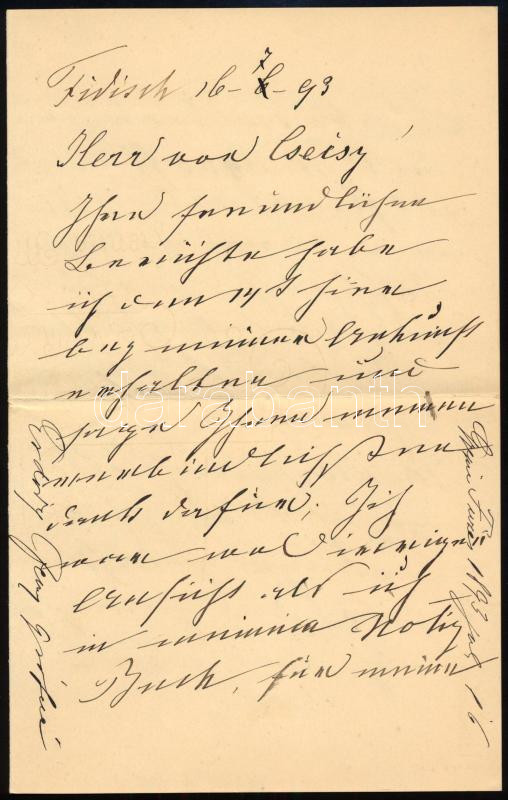 Fidisch 16-7-93
Herr von Cseisy!
Ihre freundlichen
Berichte habe
ich den 14 hier
bey meiner Ankunft
erhalten und
sage Ihnen meinen
verbindlichsten
dank dafür; Ich
war
als ich
in meinem Notiz
Buch, für meine
Erdődy György grófné
1893 Jul 16
darabanth